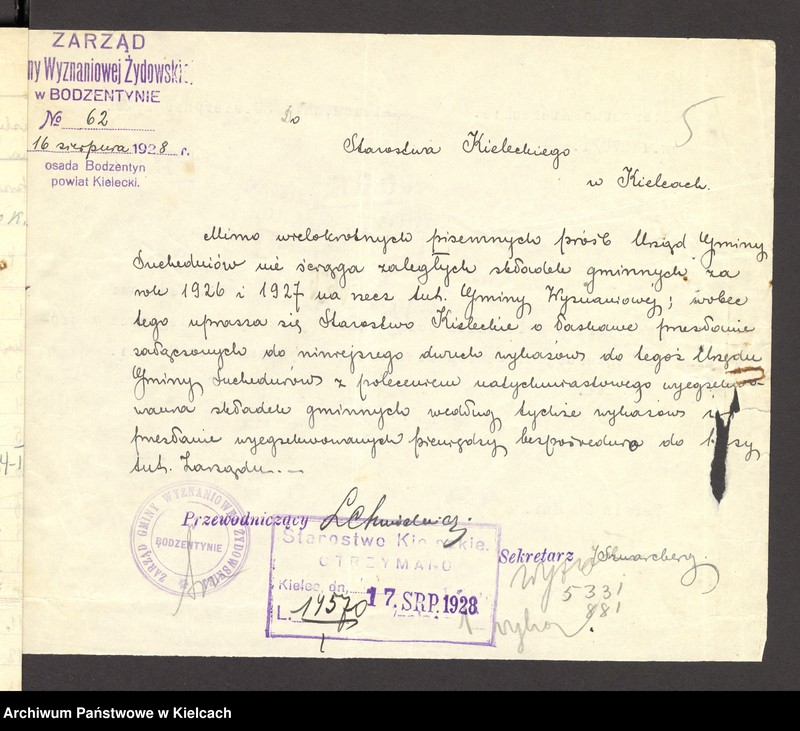 ZARZĄD
ny Wyznaniowej Żydowski
w BODZENTYNIE
№ 62
16 sierpnia 1928 r.
osada Bodzentyn
powiat Kielecki.
5
Do
Starostwa Kieleckiego
w Kielcach.
Mimo wielokrotnych pisemnych próśb Urząd Gminy
Suchedniów nie ściąga zaległych składek gminnych za
rok 1926 i 1927 na rzecz tut. Gminy Wyznaniowej; wobec
tego uprasza się Starostwo Kieleckie o łaskawe przesłanie
załączonych do niniejszego dwuch wykazów do tegoż Urzędu
Gminy Suchedniów z poleceniem natychmiastowego wyegzekwo-
wania składek gminnych według tychże wykazów i
przesłanie wyegzekwowanych pieniędzy bezpośrednio do kasy
tut. Zarządu.
Przewodniczący
Sekretarz Szwarcberg
ZARZĄD GMINY WYZNANIOWEJ ŻYDOWSKIEJ
BODZENTYNIE
Starostwo Kieleckie.
OTRZYMANO
Kielce, dn. 17. SRP. 1928
L. 14570
533
881
Archiwum Państwowe w Kielcach